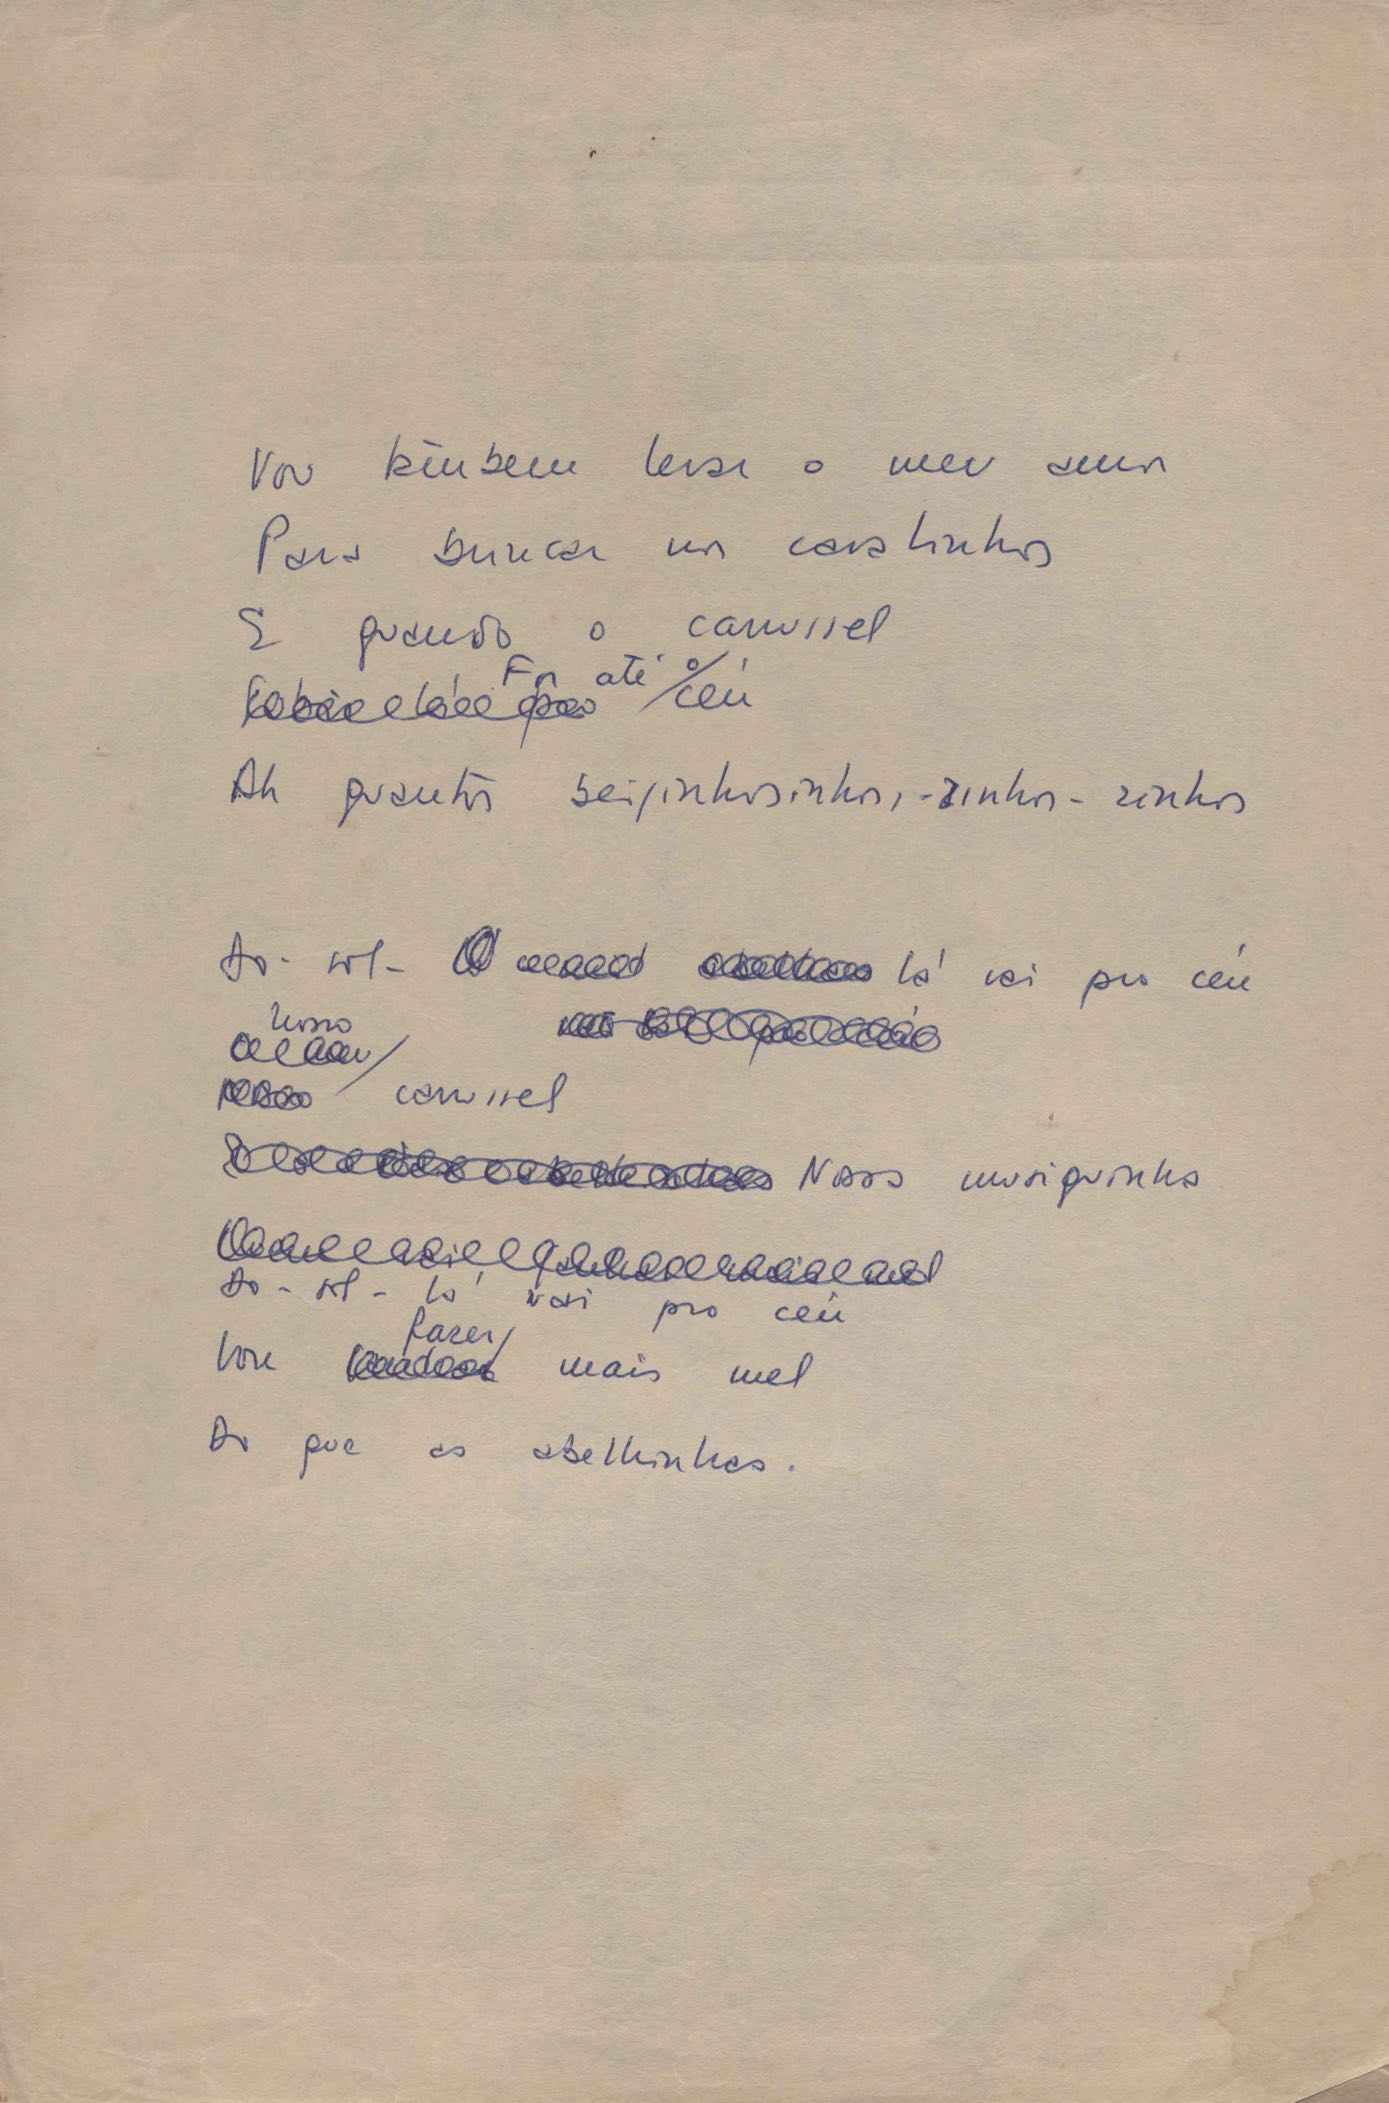 Vou também levar o meu amor
Para brincar nos cavalinhos
E quando o carrossel
For até o céu
Ah quantos beijinhosinhos, -zinhos- zinhos
Do- sol- lá vai pro céu
nosso
carrossel
Nossa musiquinha
Do - sol - lá vai pro céu
fazer
Vou mais mel
Do que as abelhinhas.